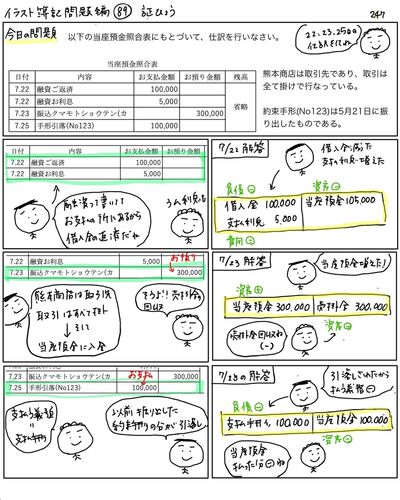 イラスト簿記問題編 89 証ひょう
247
今日の問題
以下の当座預金照合表にもとづいて、仕訳を行いなさい。
22、23、25日の
当座預金照合表
日付 内容 お支払金額 お預り金額 残高
7.22 融資ご返済 100,000
7.22 融資お利息 5,000
7.23 振込クマモトショウテン(カ 300,000
7.25 手形引落(No123) 100,000
省略
熊本商店は取引先であり、取引は
全て掛けで行なっている。
約束手形(No123)は5月21日に振
り出したものである。
日付 内容 お支払金額 お預り金額
7.22 融資ご返済 100,000
7.22 融資お利息 5,000
融資って書いて
お支払の所にあるから
借入金の返済だね
うん利息も
7/22 解答
借入金減った
支払利息増えた
負債⊖
資産⊖
借入金 100,000 当座預金 105,000
支払利息 5,000
費用⊕
7.22 融資お利息 5,000
お預り
7.23 振込クマモトショウテン(カ 300,000
熊本商店は取引先
取引はすべて掛け
そして
当座預金に入金
そうよ!売掛金の
回収
7/23 解答
当座預金増えた!
資産⊕
当座預金 300,000 売掛金 300,000
資産⊖
売掛金回収ね
(-)
お支払
7.23 振込クマモトショウテン(カ 300,000
7.25 手形引落(No123) 100,000
支払う義務
=
支払手形
以前振り出した
約束手形の分が引落し
7/25の解答
引落しされたから
払う義務⊖
負債⊖
支払手形 100,000 当座預金 100,000
資産⊖
当座預金
払った分⊖ね